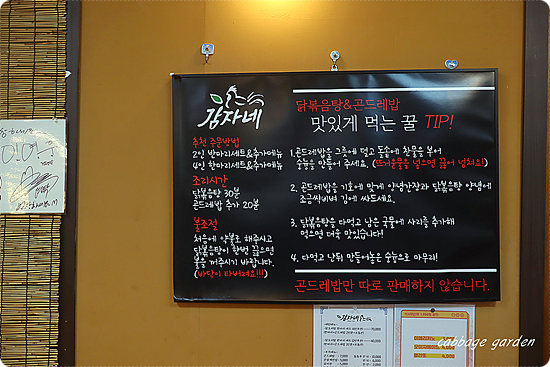 감자네
추천 주문방법
2인 반마리세트&추가메뉴
4인 한마리세트&추가메뉴
조리시간
닭볶음탕 30분
곤드레밥 추가 20분
불조절
처음에 약불로 해주시고
닭볶음탕이 한번 끓으면
불을 꺼주시기 바랍니다.
(바닥이 타버려요!!!)
닭볶음탕&곤드레밥
맛있게 먹는 꿀 TIP!
1. 곤드레밥을 그릇에 덜고 돌솥에 찬물을 부어
숭늉을 만들어 주세요. (뜨거운물을 넣으면 끓어 넘쳐요!)
2. 곤드레밥을 기호에 맞게 양념간장과 닭볶음탕 양념에
조금씩비벼 김에 싸드세요.
3. 닭볶음탕을 다먹고 남은 국물에 사리를 추가해
먹으면 더욱 맛있습니다!
4. 다먹고 난뒤 만들어놓은 숭늉으로 마무리!
곤드레밥만 따로 판매하지 않습니다.
감자네
4,000
cabbage garden